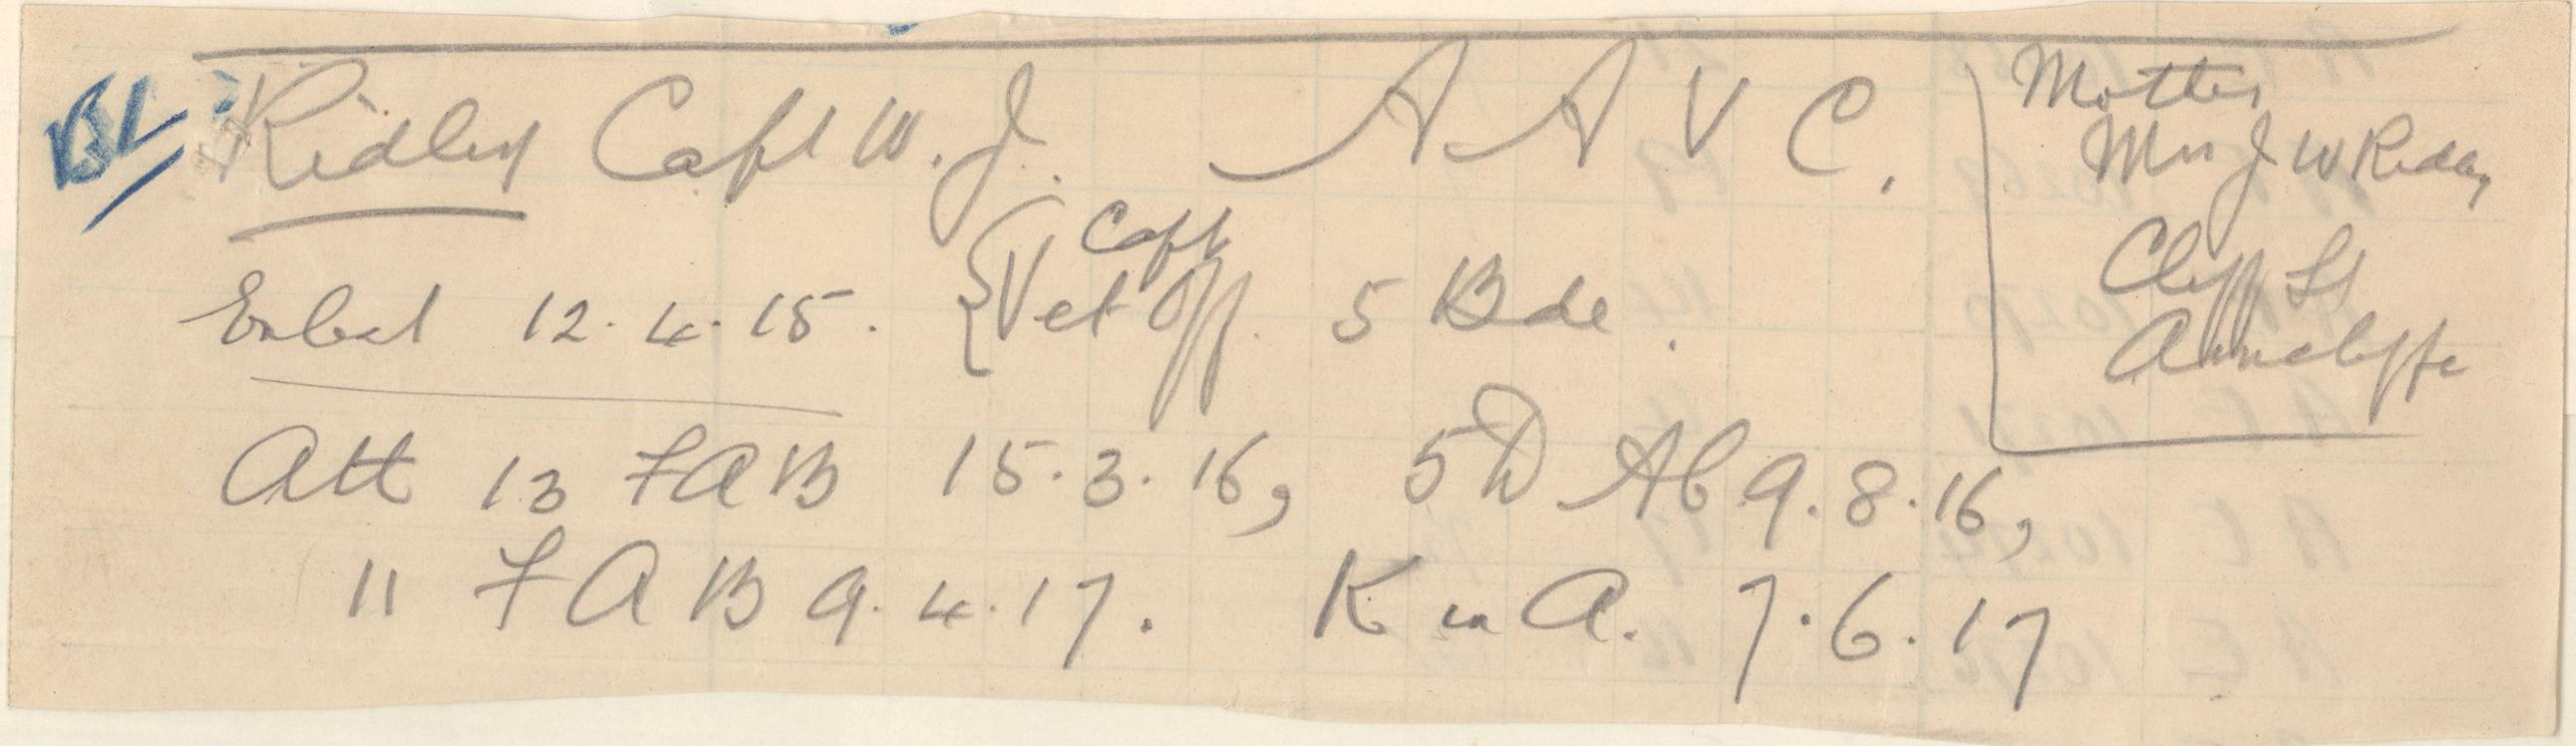 BL Ridley Capt W. J. A A V C.
Mother
Mrs J W Ridley
Cliff St
Arncliffe
Capt
Enbed 12.4.15. {Vet Off. 5 Bde.
Att 13 FAB 15.3.16, 5 D AC 9.8.16,
11 FAB 9.4.17. K in A. 7.6.17